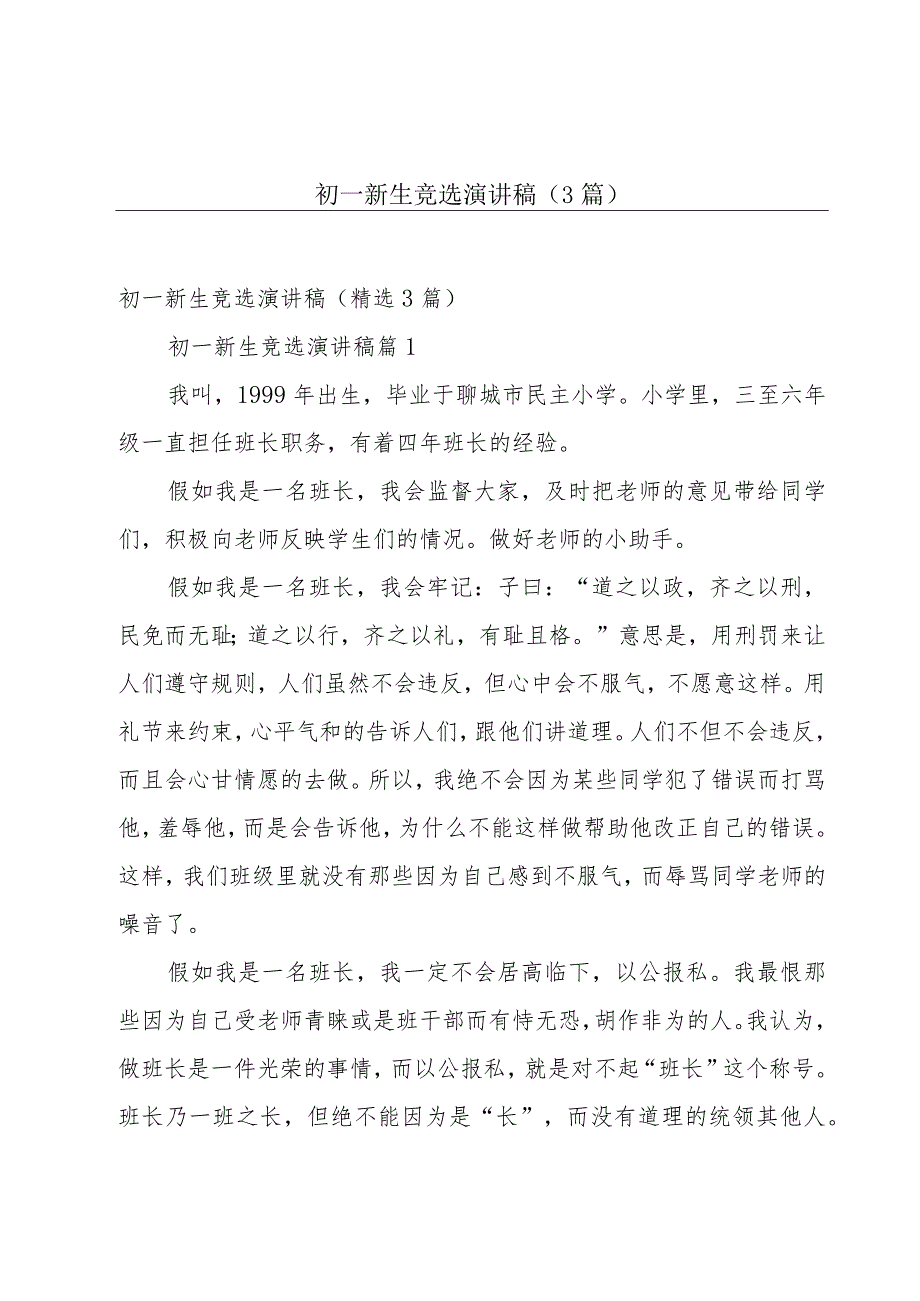 初一新生竞选演讲稿（3 篇）
初一新生竞选演讲稿（精选 3 篇）
初一新生竞选演讲稿篇 1
我叫，1999 年出生，毕业于聊城市民主小学。小学里，三至六年
级一直担任班长职务，有着四年班长的经验。
假如我是一名班长，我会监督大家，及时把老师的意见带给同学
们，积极向老师反映学生们的情况。做好老师的小助手。
假如我是一名班长，我会牢记：子曰：“道之以政，齐之以刑，
民免而无耻；道之以行，齐之以礼，有耻且格。”意思是，用刑罚来让
人们遵守规则，人们虽然不会违反，但心中会不服气，不愿意这样。用
礼节来约束，心平气和的告诉人们，跟他们讲道理。人们不但不会违反，
而且会心甘情愿的去做。所以，我绝不会因为某些同学犯了错误而打骂
他，羞辱他，而是会告诉他，为什么不能这样做帮助他改正自己的错误。
这样，我们班级里就没有那些因为自己感到不服气，而辱骂同学老师的
噪音了。
假如我是一名班长，我一定不会居高临下，以公报私。我最恨那
些因为自己受老师青睐或是班干部而有恃无恐，胡作非为的人。我认为，
做班长是一件光荣的事情，而以公报私，就是对不起“班长”这个称号。
班长乃一班之长，但绝不能因为是“长”，而没有道理的统领其他人。